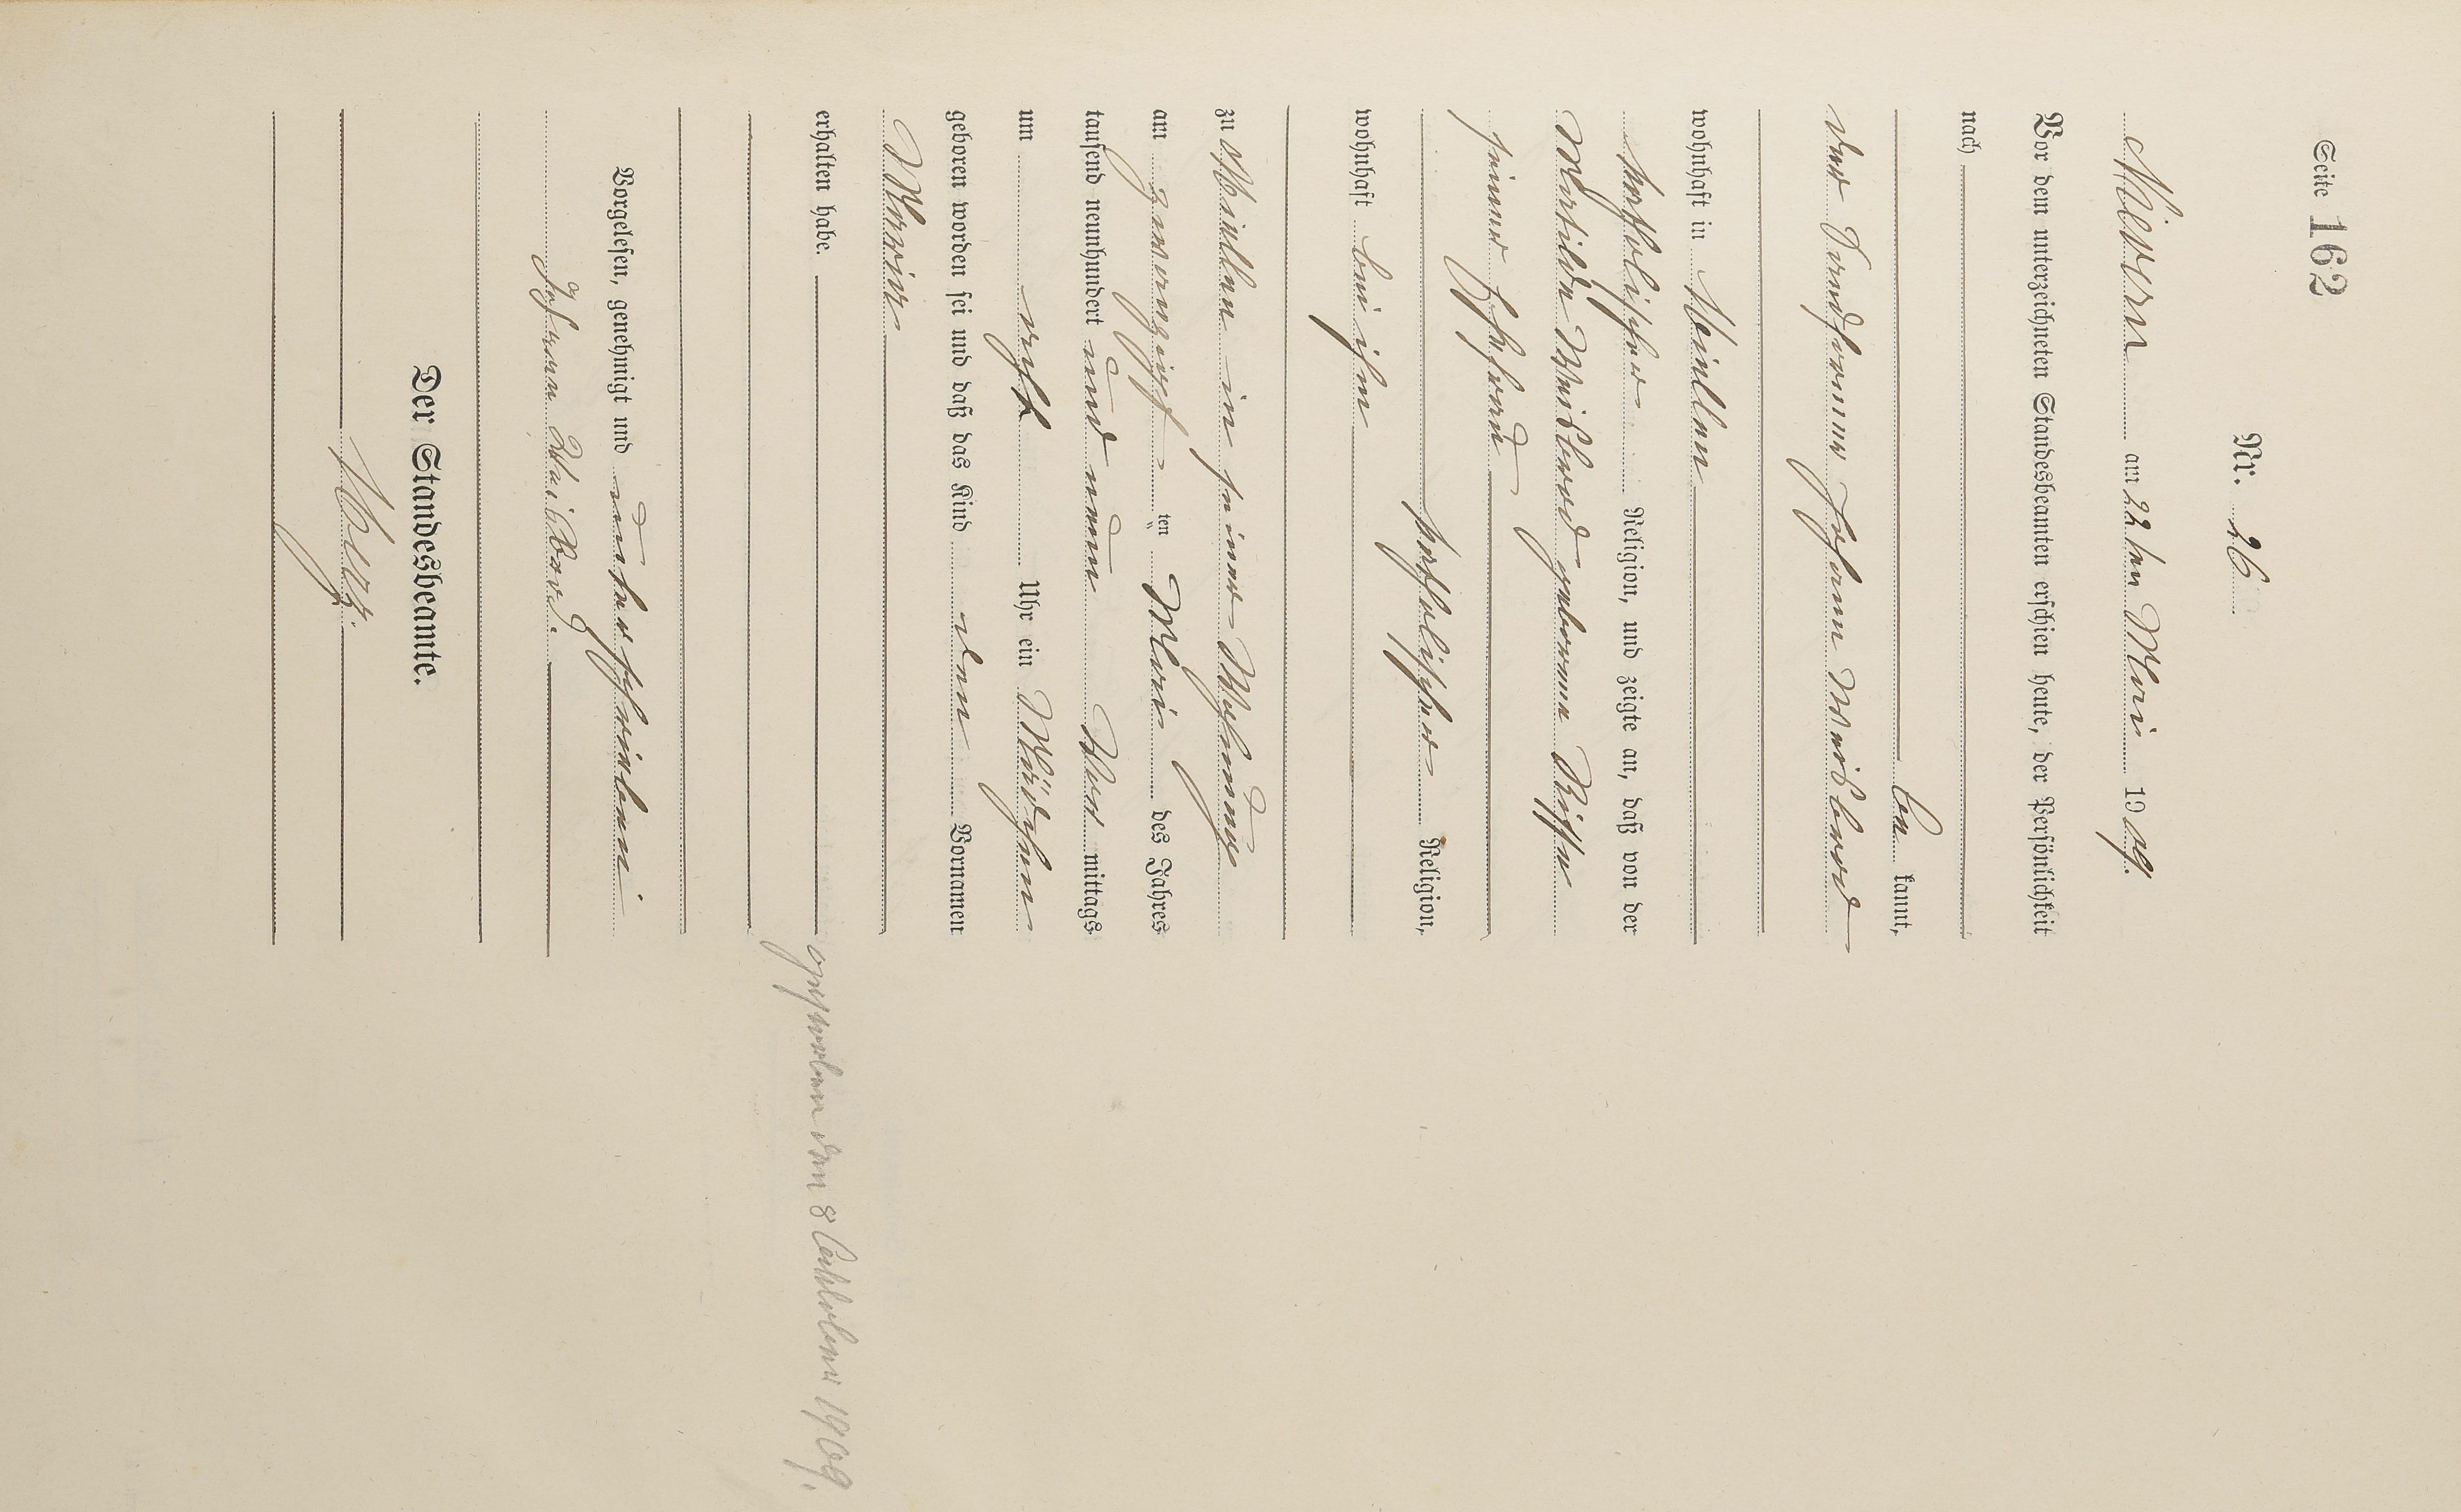 Seite 162
Nr. 26
Nievern am 22 ten Mai 19 09.
Vor dem unterzeichneten Standesbeamten erschien heute, der Persönlichkeit
nach
be kannt,
der Johann Weisbrod
wohnhaft in Miellen
katholischer Religion, und zeigte an, daß von der
Weisbrod geborenen
seiner Ehefrau
katholischer Religion,
wohnhaft bei ihm
zu Miellen in seiner Wohnung
am zwanzigsten Mai des Jahres
tausend neunhundert und neun Vor mittags
um acht Uhr ein Mädchen
geboren worden sei und daß das Kind den Vornamen
Maria
erhalten habe.
gestorben den 8 Oktober 1909.
Vorgelesen, genehmigt und unterschrieben
Johann Weisbrod.
Der Standesbeamte.